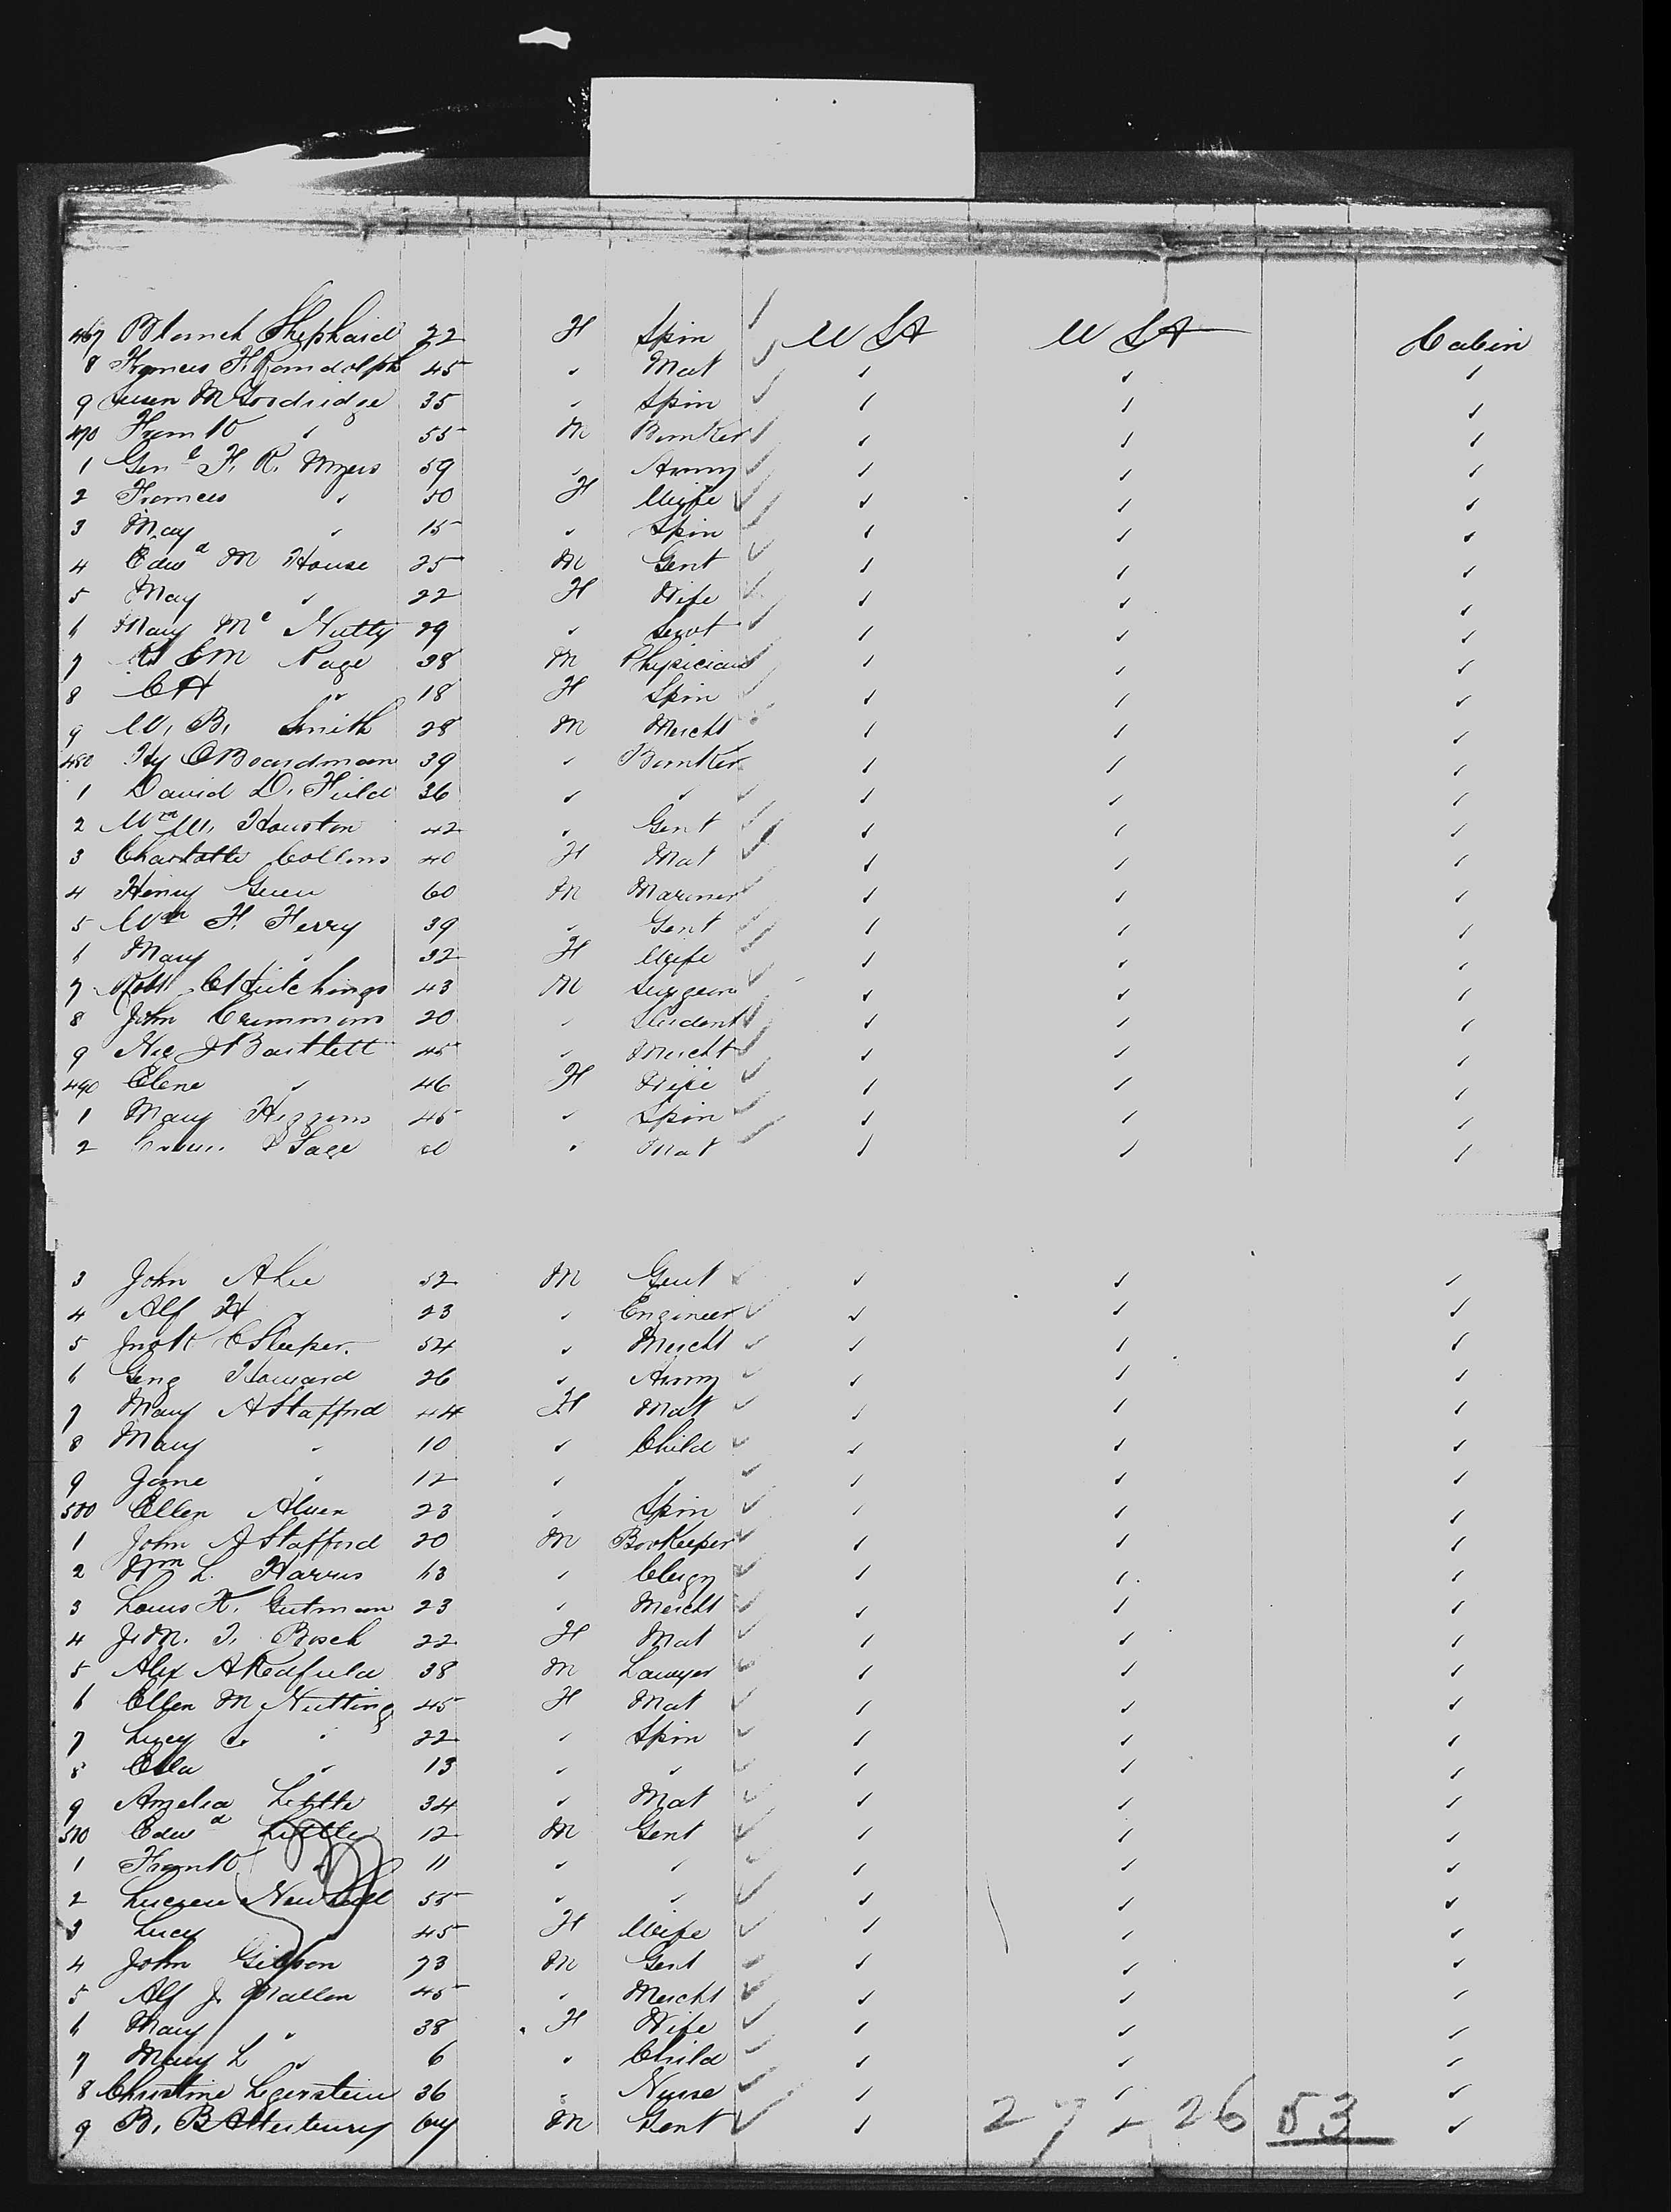 467 Blanch Shephard 22 F Spin USA USA Cabin
8 Frances F. Randolph 45 " Mat " " "
9 Susan M Goodridge 35 " Spin " " "
470 Frank " 55 M Banker " " "
1 Genl F. R. Myers 59 " Army " " "
2 Frances " 50 F Wife " " "
3 May " 15 " Spin " " "
4 Edwd M House 25 M Gent " " "
5 May " 22 F Wife " " "
6 Mary Mc Nulty 29 " Servt " " "
7 R C M Page 38 M Physician " " "
8 C H " 18 F Spin " " "
9 W. B. Smith 28 M Mercht " " "
480 Hy A Boardman 39 " Banker " " "
1 David D. Field 36 " " " " "
2 Wm W. Houston 42 " Gent " " "
3 Charlotte Collins 40 F Mat " " "
4 Henry Green 60 M Mariner " " "
5 Wm F. Ferry 39 " Gent " " "
6 Mary " 32 F Wife " " "
7 Robt C Hutchings 43 M Surgeon " " "
8 John Crimmins 20 " Student " " "
9 Nic J Bartlett 45 " Mercht " " "
490 Elene " 46 F Wife " " "
1 Mary Higgins 45 " Spin " " "
2 Sage " Mat " " "
3 John A Lee 52 M Gent " " "
4 Alf H " 23 " Engineer " " "
5 C Sleeper 54 " Mercht " " "
6 Geng Howard 26 " Army " " "
7 Mary A Stafford 44 F Mat " " "
8 Mary " 10 " Child " " "
9 Jane " 12 " " " " "
500 Ellen Alven 23 " Spin " " "
1 John J Stafford 20 M Bookeeper " " "
2 Wm L. Harris 63 " Clergy " " "
3 Louis K. Gutman 23 " Mercht " " "
4 J. M. T. Bosch 22 F Mat " " "
5 Alex A Redfield 38 M Lawyer " " "
6 Ellen M Nutting 45 F Mat " " "
7 Lucy S. " 22 " Spin " " "
8 Ella " 13 " " " " "
9 Amelia Little 34 " Mat " " "
510 Edwd Little 12 M Gent " " "
1 Frank " 11 " " " " "
2 Lucian Newhall 55 " " " " "
3 Lucy " 45 F Wife " " "
4 John Gibson 73 M Gent " " "
5 Alf J. Mallen 45 " Mercht " " "
6 Mary " 38 F Wife " " "
7 Mary L " 6 " Child " " "
8 Christine Legerstein 36 " Nurse " " "
9 B. B Atterbury 64 M Gent " 27 + 26 53 "